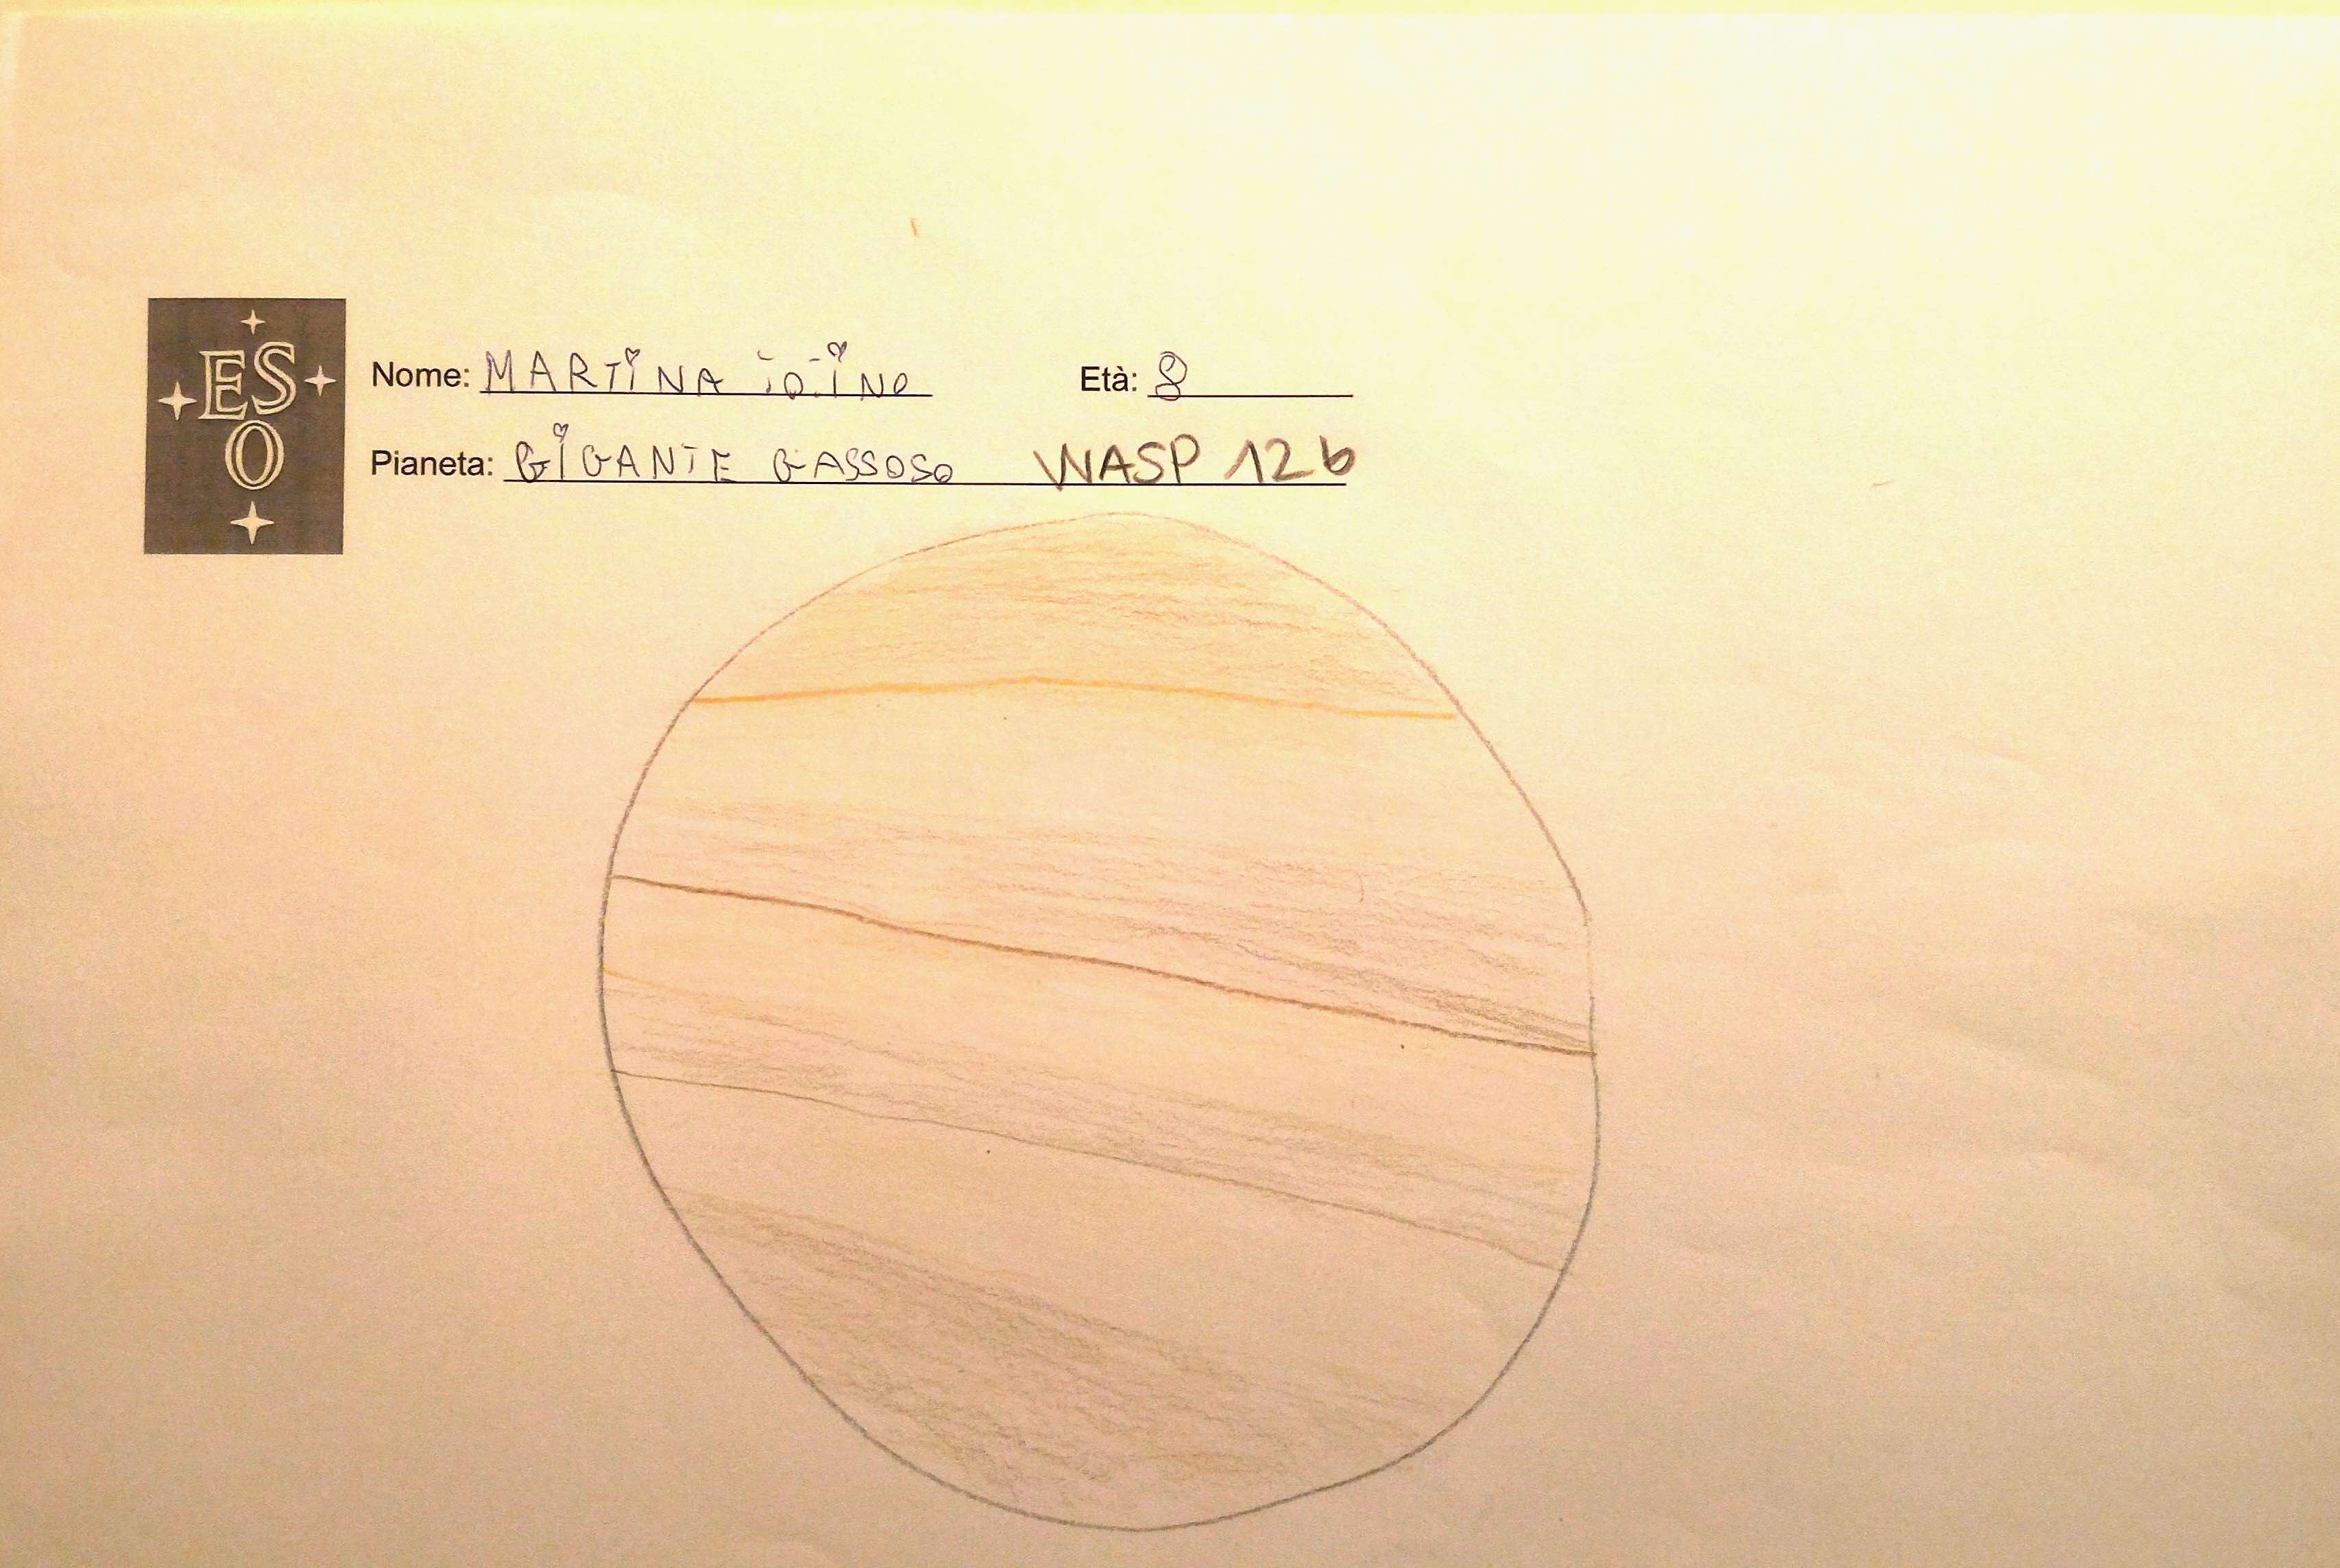 ESO
Nome: MARTiNA iOiNO Età: 8
Pianeta: GiGANTE GASSOSO WASP 12b